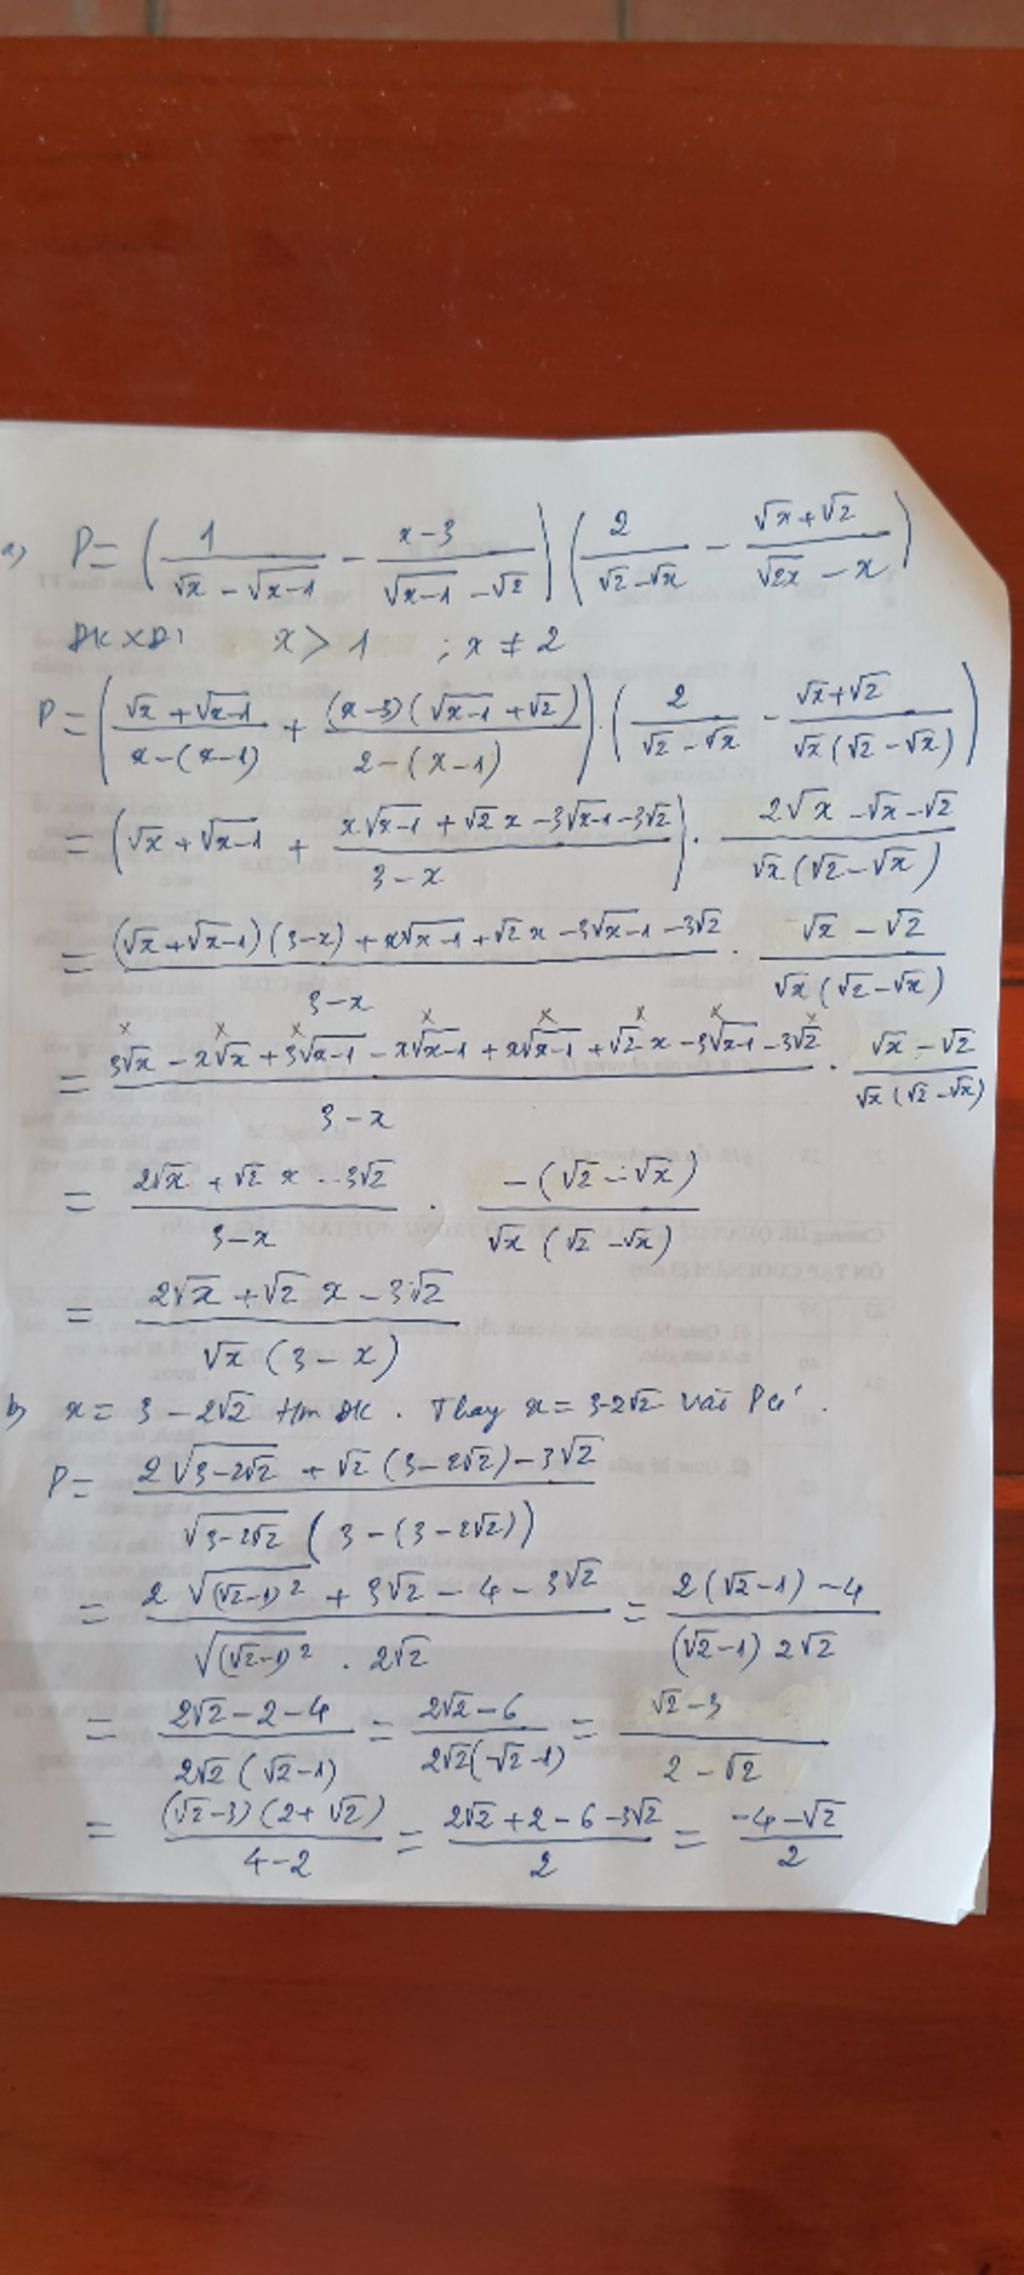 a) P = (1/(√x - √(x-1)) - (x-3)/(√(x-1) - √2)) (2/(√2 - √x) - (√x + √2)/(√2x - x))
ĐKXĐ: x > 1 ; x ≠ 2
P = ((√x + √(x-1))/(x - (x-1)) + (x-3)(√(x-1) + √2)/(2 - (x-1))) . (2/(√2 - √x) - (√x + √2)/(√x(√2 - √x)))
= (√x + √(x-1) + (x√(x-1) + √2 x - 3√(x-1) - 3√2)/(3-x)) . (2√x - √x - √2)/(√x(√2 - √x))
= ((√x + √(x-1))(3-x) + x√(x-1) + √2 x - 3√(x-1) - 3√2)/(3-x) . (√x - √2)/(√x(√2 - √x))
= (3√x - x√x + 3√(x-1) - x√(x-1) + x√(x-1) + √2 x - 3√(x-1) - 3√2)/(3-x) . (√x - √2)/(√x(√2 - √x))
= (2√x + √2 x - 3√2)/(3-x) . -(√2 - √x)/(√x(√2 - √x))
= (2√x + √2 x - 3√2)/(√x(3-x))
b) x = 3 - 2√2 tm ĐK . Thay x = 3-2√2 vào P có
P = (2√(3-2√2) + √2(3-2√2) - 3√2)/(√(3-2√2)(3-(3-2√2)))
= (2√((√2-1)²) + 3√2 - 4 - 3√2)/(√((√2-1)²) . 2√2) = (2(√2-1) - 4)/((√2-1)2√2)
= (2√2 - 2 - 4)/(2√2(√2-1)) = (2√2 - 6)/(2√2(√2-1)) = (√2 - 3)/(2 - √2)
= (√2-3)(2+√2)/(4-2) = (2√2 + 2 - 6 - 3√2)/2 = (-4 - √2)/2